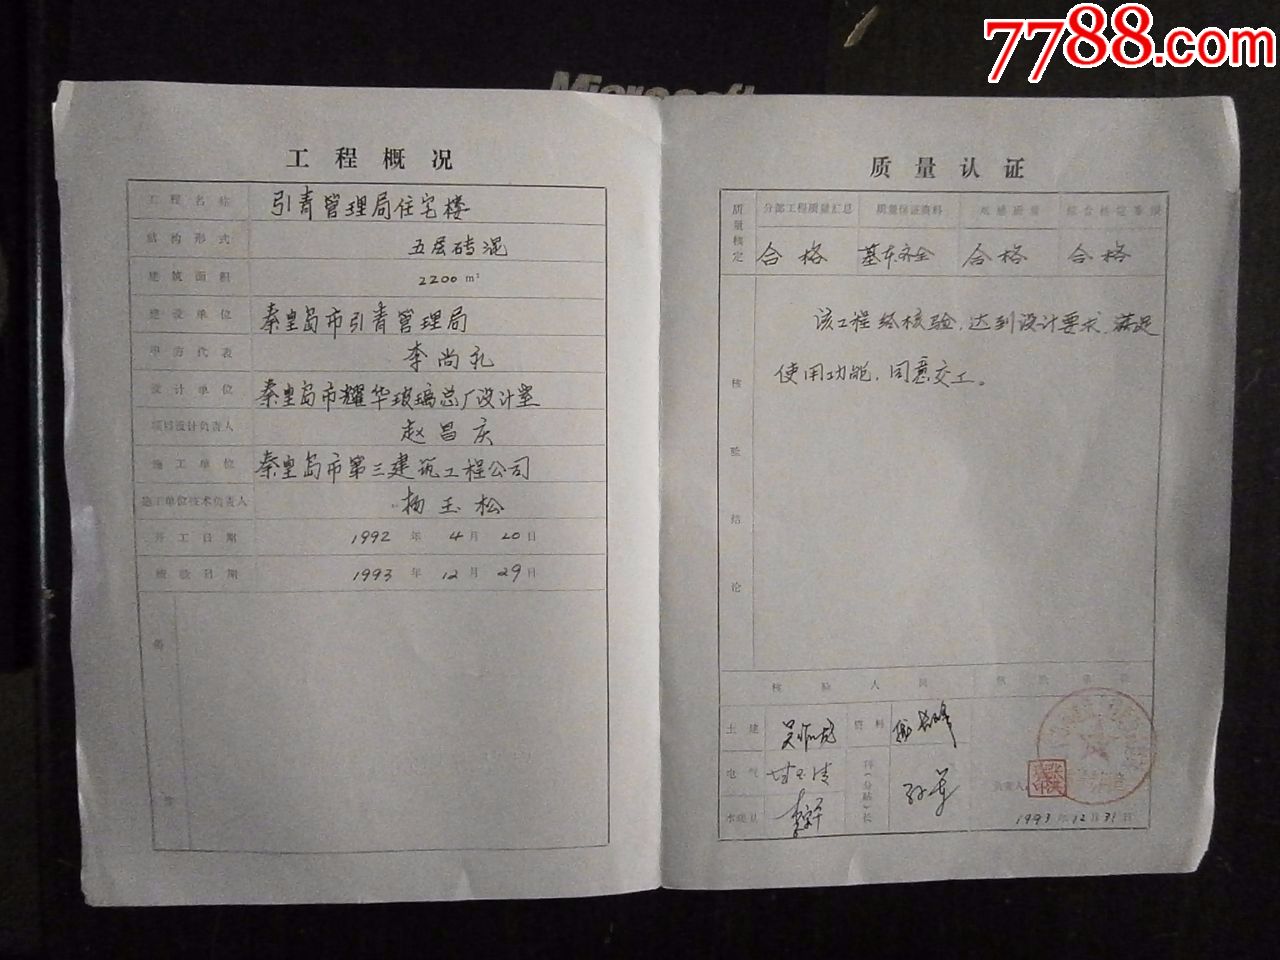 7788.com
Microsoft
工程概况
工程名称 引青管理局住宅楼
结构形式 五层砖混
建筑面积 2200 m²
建设单位 秦皇岛市引青管理局
甲方代表 李尚礼
设计单位 秦皇岛市耀华玻璃总厂设计室
项目设计负责人 赵昌庆
施工单位 秦皇岛市第三建筑工程公司
施工单位技术负责人 杨玉松
开工日期 1992 年 4 月 20 日
核验日期 1993 年 12 月 29 日
备
注
质量认证
质量核定 分部工程质量汇总 质量保证资料 观感质量 综合核定等级
合格 基本齐全 合格 合格
核验结论
该工程经核验,达到设计要求,满足
使用功能,同意交工。
核验人员 核验单位
土建 资料
电气 科(分站)长 孙军
水暖卫 负责人
1993 年 12 月 31 日